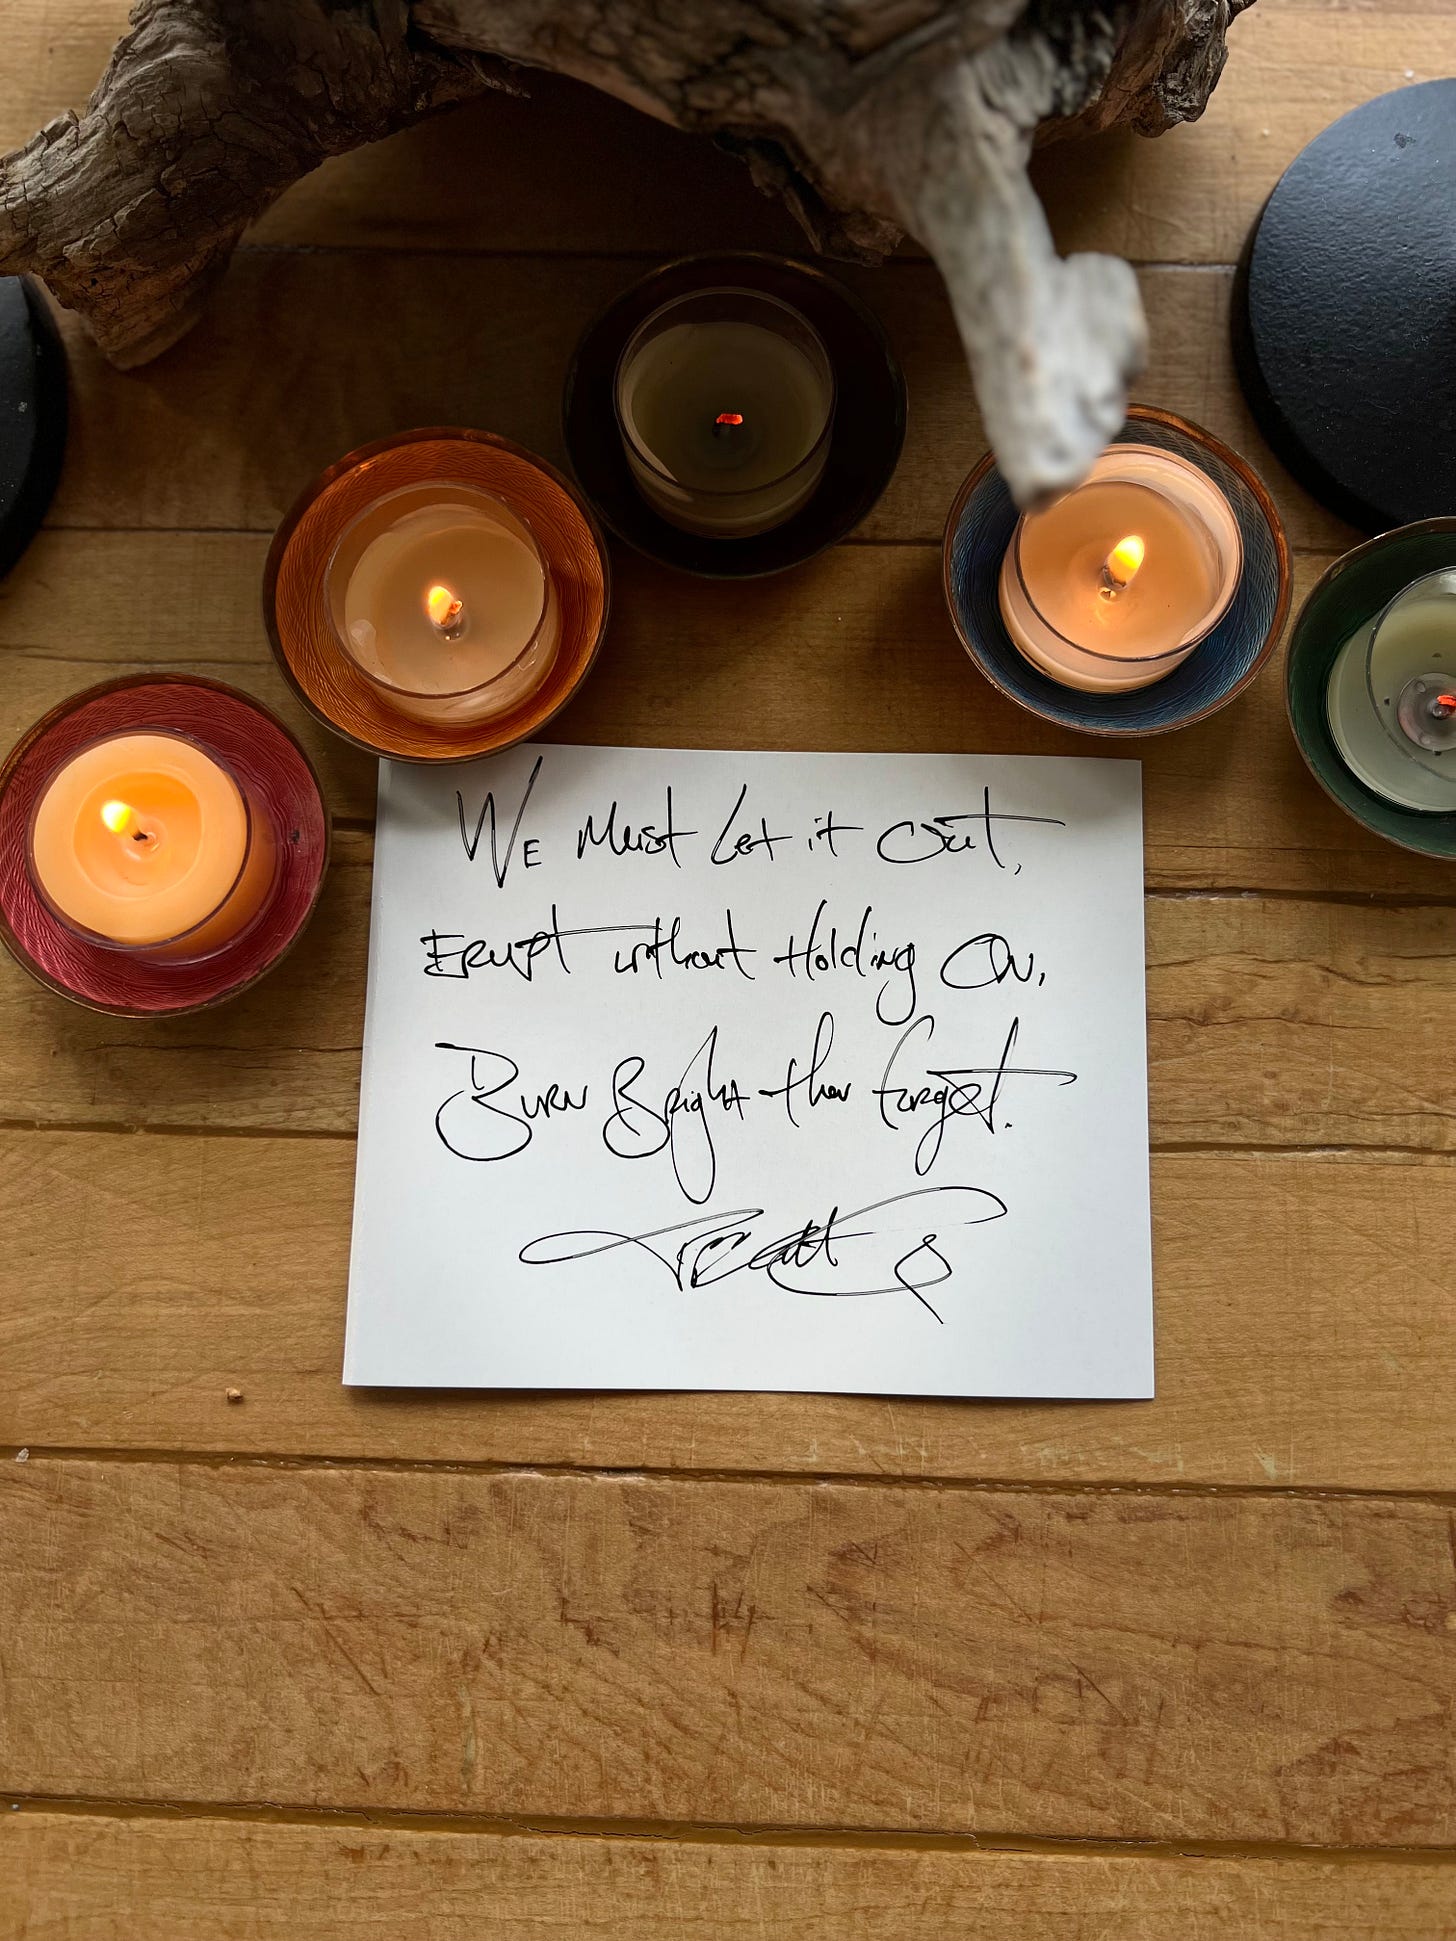 We Must Let it Out,
Erupt without Holding On,
Burn Bright then forget.